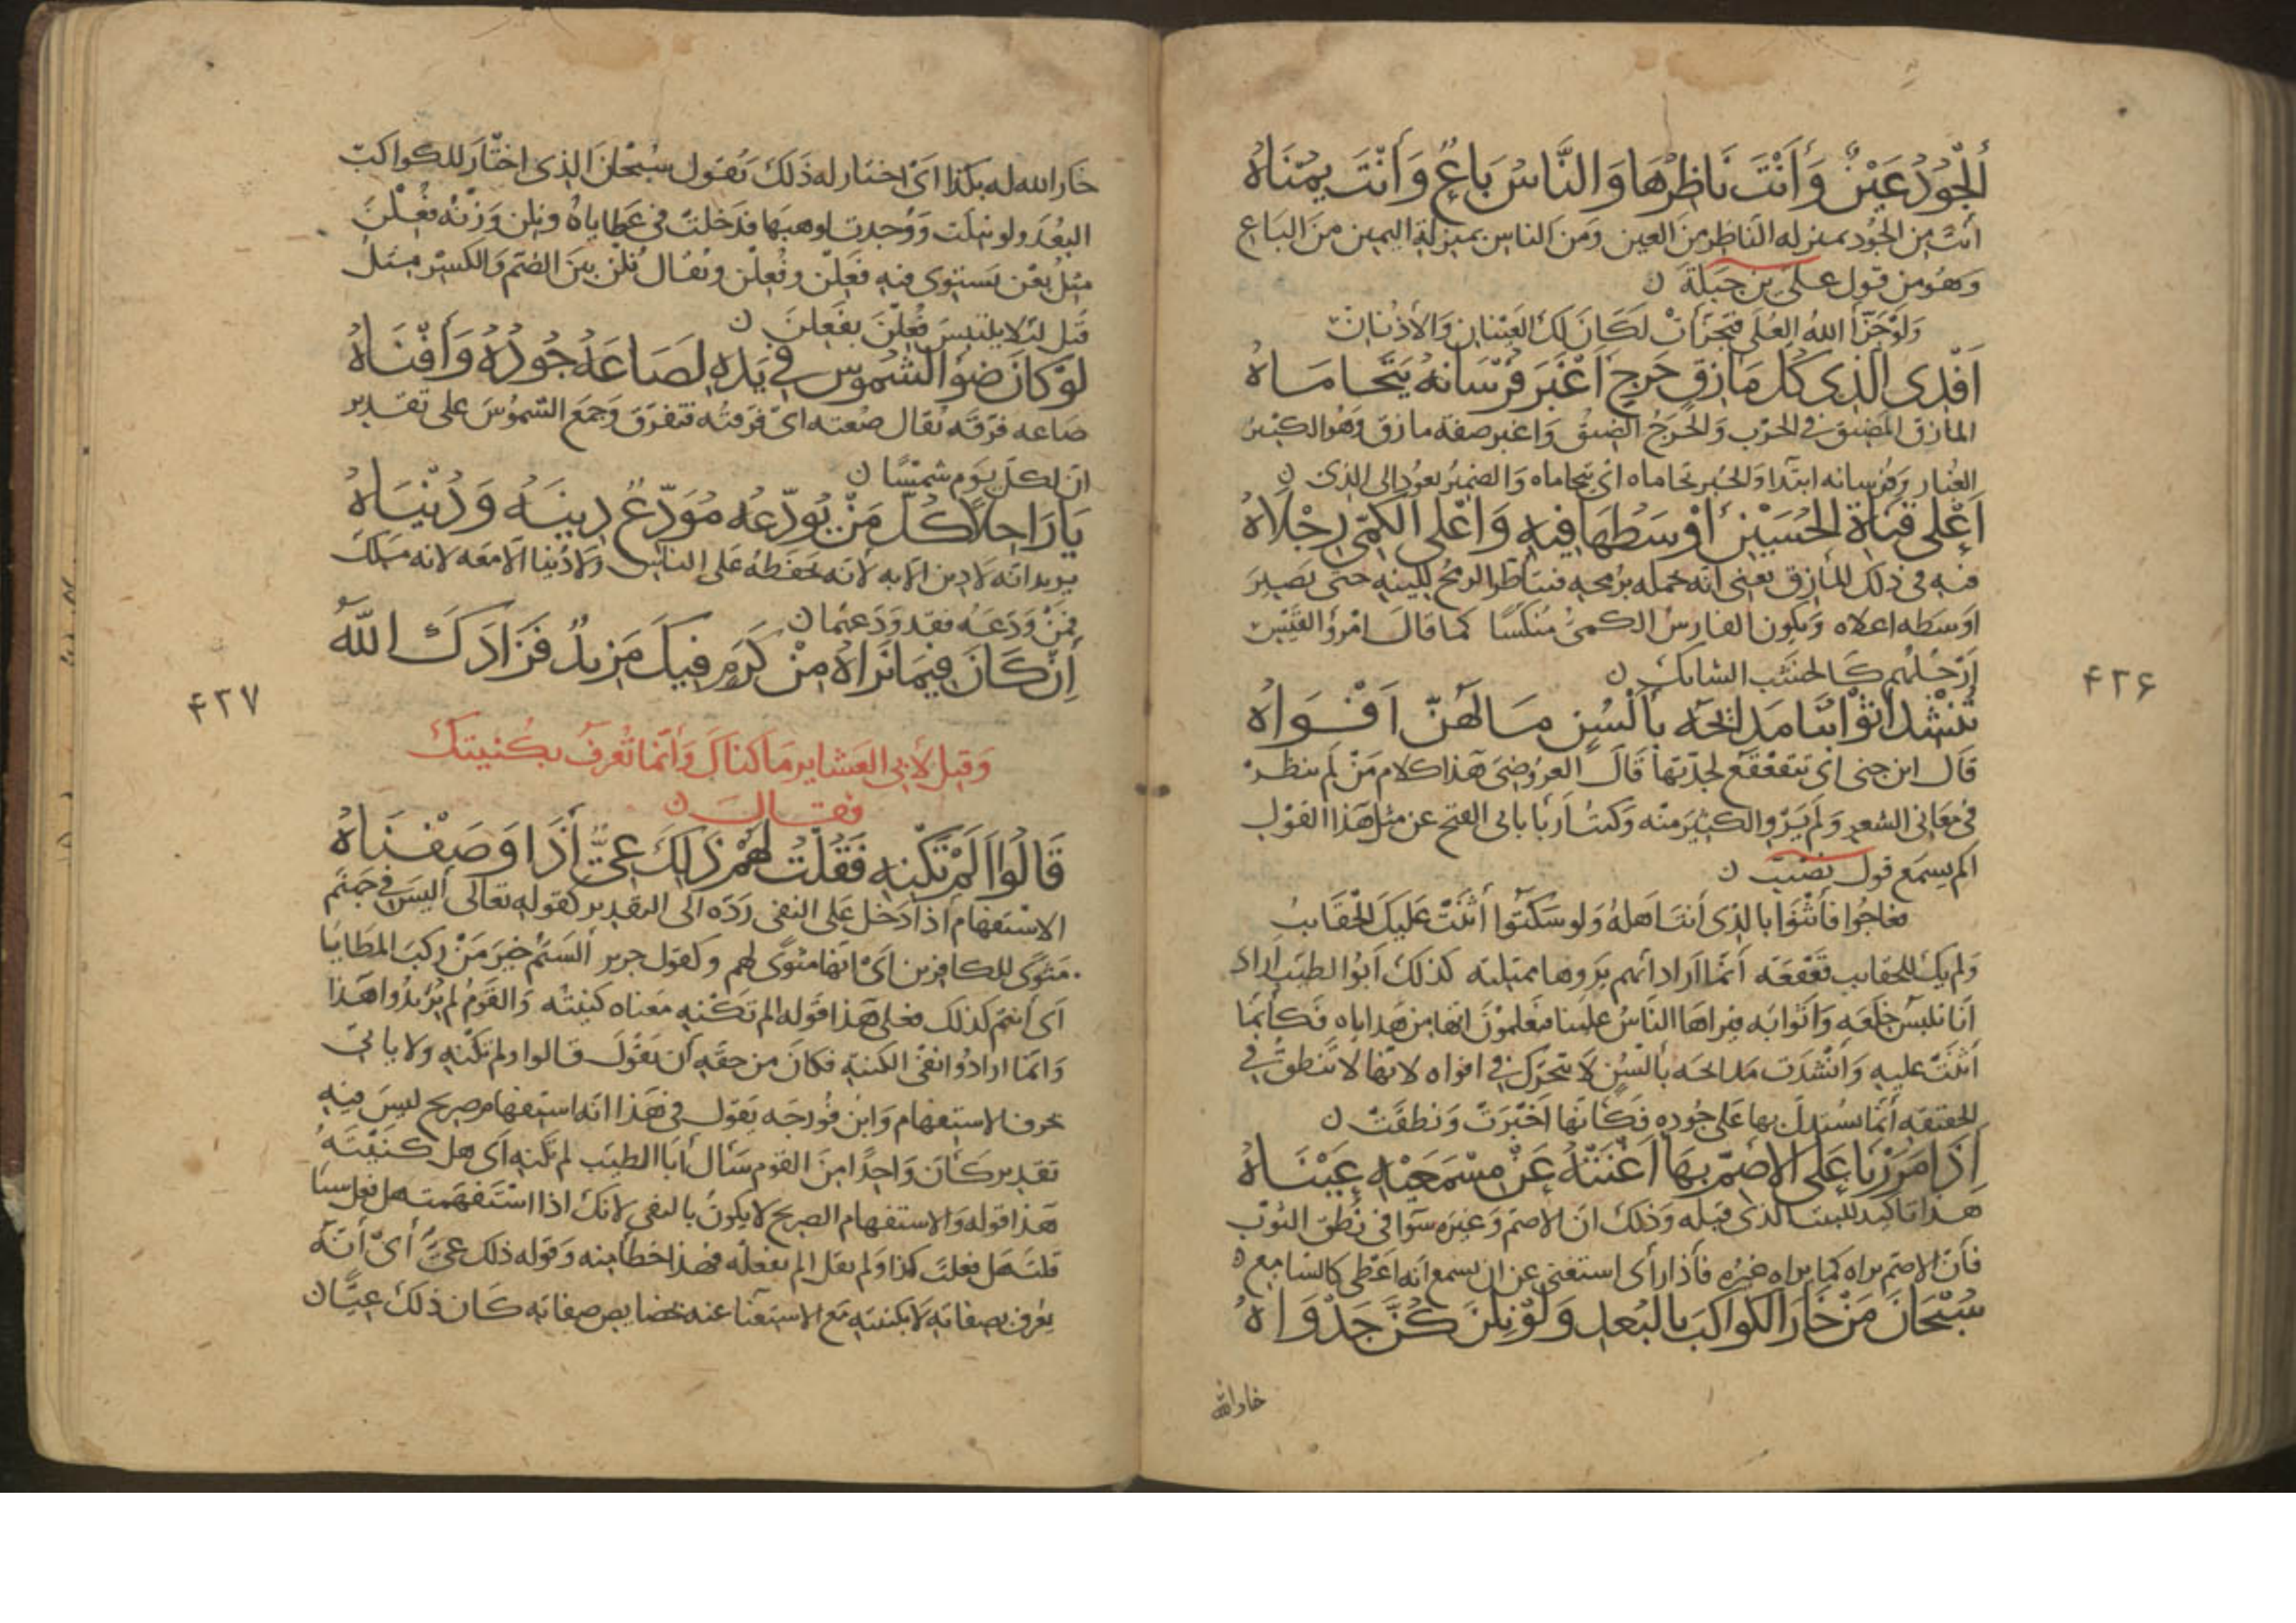 أَلْجُوْدُ عَيْنٌ وَأَنْتَ نَاظِرُهَا وَالنَّاسُ بَاعٌ وَأَنْتَ يُمْنَاهُ
أنت من الجُود بمنزله الناظر من العين ومن الناس بمنزلة اليمين من الباع
وهو من قول علي بن جبلة ن
وَلوْ جَزّأ اللهُ العُلَى فتجزأت لكَانَ لك العَيْنان وَالأذُنان
أَفْدِى الَّذِى كُلُّ مَأْزِقٍ حَرِجٍ أَغْبَرَ فُرْسَانُهُ يَتَحَامَاهُ
المازق المضيق في الحرب والحَرَجُ الضيق واغبر صفة مازق وهو الكثير
الغبار وفرسانه ابتدا والخبر تحاماه اى يتحاماه والضمير يعود الى الذى ن
أَعْلَى قَنَاةِ الحُسَيْنِ أَوْسَطُهَا فِيهِ وَأَعْلَى الكَمِيِّ رِجْلَاهُ
فيه في ذلك المازق يعنى انه حمله برمحه فيتأطر الرمح للينه حتى يصير
اوسطه اعلاه ويكون الفارس الكمى منكسا كما قال امرؤ القيس
ارجلهم كالخشب الشايك ن
تُنْشِدُ أَثْوَابُنَا مَدَائِحَهُ بِأَلْسُنٍ مَا لَهُنَّ أَفْوَاهُ
قال ابن جنى اى تتقعقع لجدتها قال العروضى هذا كلام من لم ينظر
في معانى الشعر ولم يَرْوِ الكثير منه وكنت اربا بابى الفتح عن مثل هذا القول
الم يسمع قول نصيب ن
فعاجُوا فأثْنَوا بالذى أنت اهلهُ وَلو سَكتُوا أثنَتْ عَليكَ الحَقَايبُ
ولم يك للحقايب قعقعة أنما اراد انهم يروها ممتليه كذلك ابوا الطيب اراد
أنا نلبس خلعه واثوابه فيراها الناس علينا فيعلمون انها من هداياه فكأنما
أثنت عليه وأنشدت مدايحه بألسُن لا تتحرك في افواه لانها لا تنطق في
الحقيقه أنما يستدل بها على جوده فكأنها أخبرت ونطقت ن
إِذَا مَرَرْنَا عَلَى الأَصَمِّ بِهَا أَغْنَتْهُ عَنْ مِسْمَعَيْهِ عَيْنَاهُ
هذا تاكيد للبيت الذى قبله وذلك ان الاصم وغيره سوا في نطق الثوب
فأن الاصم يراه كما يراه غيره فأذا رأى استغنى عن ان يسمع انه أعطى كالسامع ن
سُبْحَانَ مَنْ خَارَ لِلْكَوَاكِبِ بِالبُعْدِ وَلَوْ نِلْنَ كُنَّ جَدْوَاهُ
خار الله
۴۲۶
خار الله له بكذا اى اختار له ذلك تقول سبحان الذى اختار للكواكب
البُعْدَ ولو نيلت ووُجدت لوهبَها فدخلت في عطاياه ونلن وزنه فُعِلْنَ
مثل بعن يستوى فيه فَعِلْن وفُعِلْن ويُقال نلن بين الضم والكسر مثل
قيل لئلا يلتبس فُعِلْنَ بفَعَلن ن
لَوْ كَانَ ضَوْءُ الشُّمُوسِ فِي يَدِهِ لَصَاعَهُ جُودُهُ وَأَفْنَاهُ
صاعه فرّقه يقال صُعته اى فرقته فتفرق وجمع الشموس على تقدير
ان لكل يوم شمسا ن
يَا رَاحِلًا كُلُّ مَنْ يُوَدِّعُهُ مُوَدِّعٌ دِينَهُ وَدُنْيَاهُ
يريد انه لا دين الا به لانه يحفظه على الناس ولا دنيا الا معه لانه ملك
فمن ودعه فقد ودعهما ن
إِنْ كَانَ فِيمَا نَرَاهُ مِنْ كَرَمٍ فِيكَ مَزِيدٌ فَزَادَكَ اللهُ
وَقِيلَ لأبى العَشَاير مَا كَنَاكَ وَأنَّمَا تُعرفُ بكُنيتك
فقال ن
قَالُوا أَلَمْ تَكْنِهِ فَقُلْتُ لَهُمْ ذَلِكَ عِيٌّ إِذَا وَصَفْنَاهُ
الاستفهام أذا دخل على النفى ردّه الى التقدير كقوله تعالى أليس في جهنم
مثوًى للكافرين اى انها مثوى لهم وكقول جرير ألستم خير من ركب المطايا
اى أنتم كذلك فعلى هذا قوله الم تكنه معناه كنيته والقوم لم يريدوا هذا
وانما ارادوا نفى الكنية فكان من حقه أن يقول قالوا ولم تكنه ولا ياتى
حرف الاستفهام وابن فورجه يقول في هذا انه استفهام صريح ليس فيه
تقدير كأن واحدا من القوم سأل أبا الطيب لم تكنه اى هل كنيته
هذا قوله والاستفهام الصريح لا يكون بالنفى لانك اذا استفهمته هل فعل سيا
قلت هل فعلت كذا ولم تقل الم تفعله فهذا خطأ منه وقوله ذلك عىٌّ أى أنه
يعرف بصفاته لا بكنيته مع الاستغنا عنه بخصايص صفاته كان ذلك عيّا ن
۴۲۷